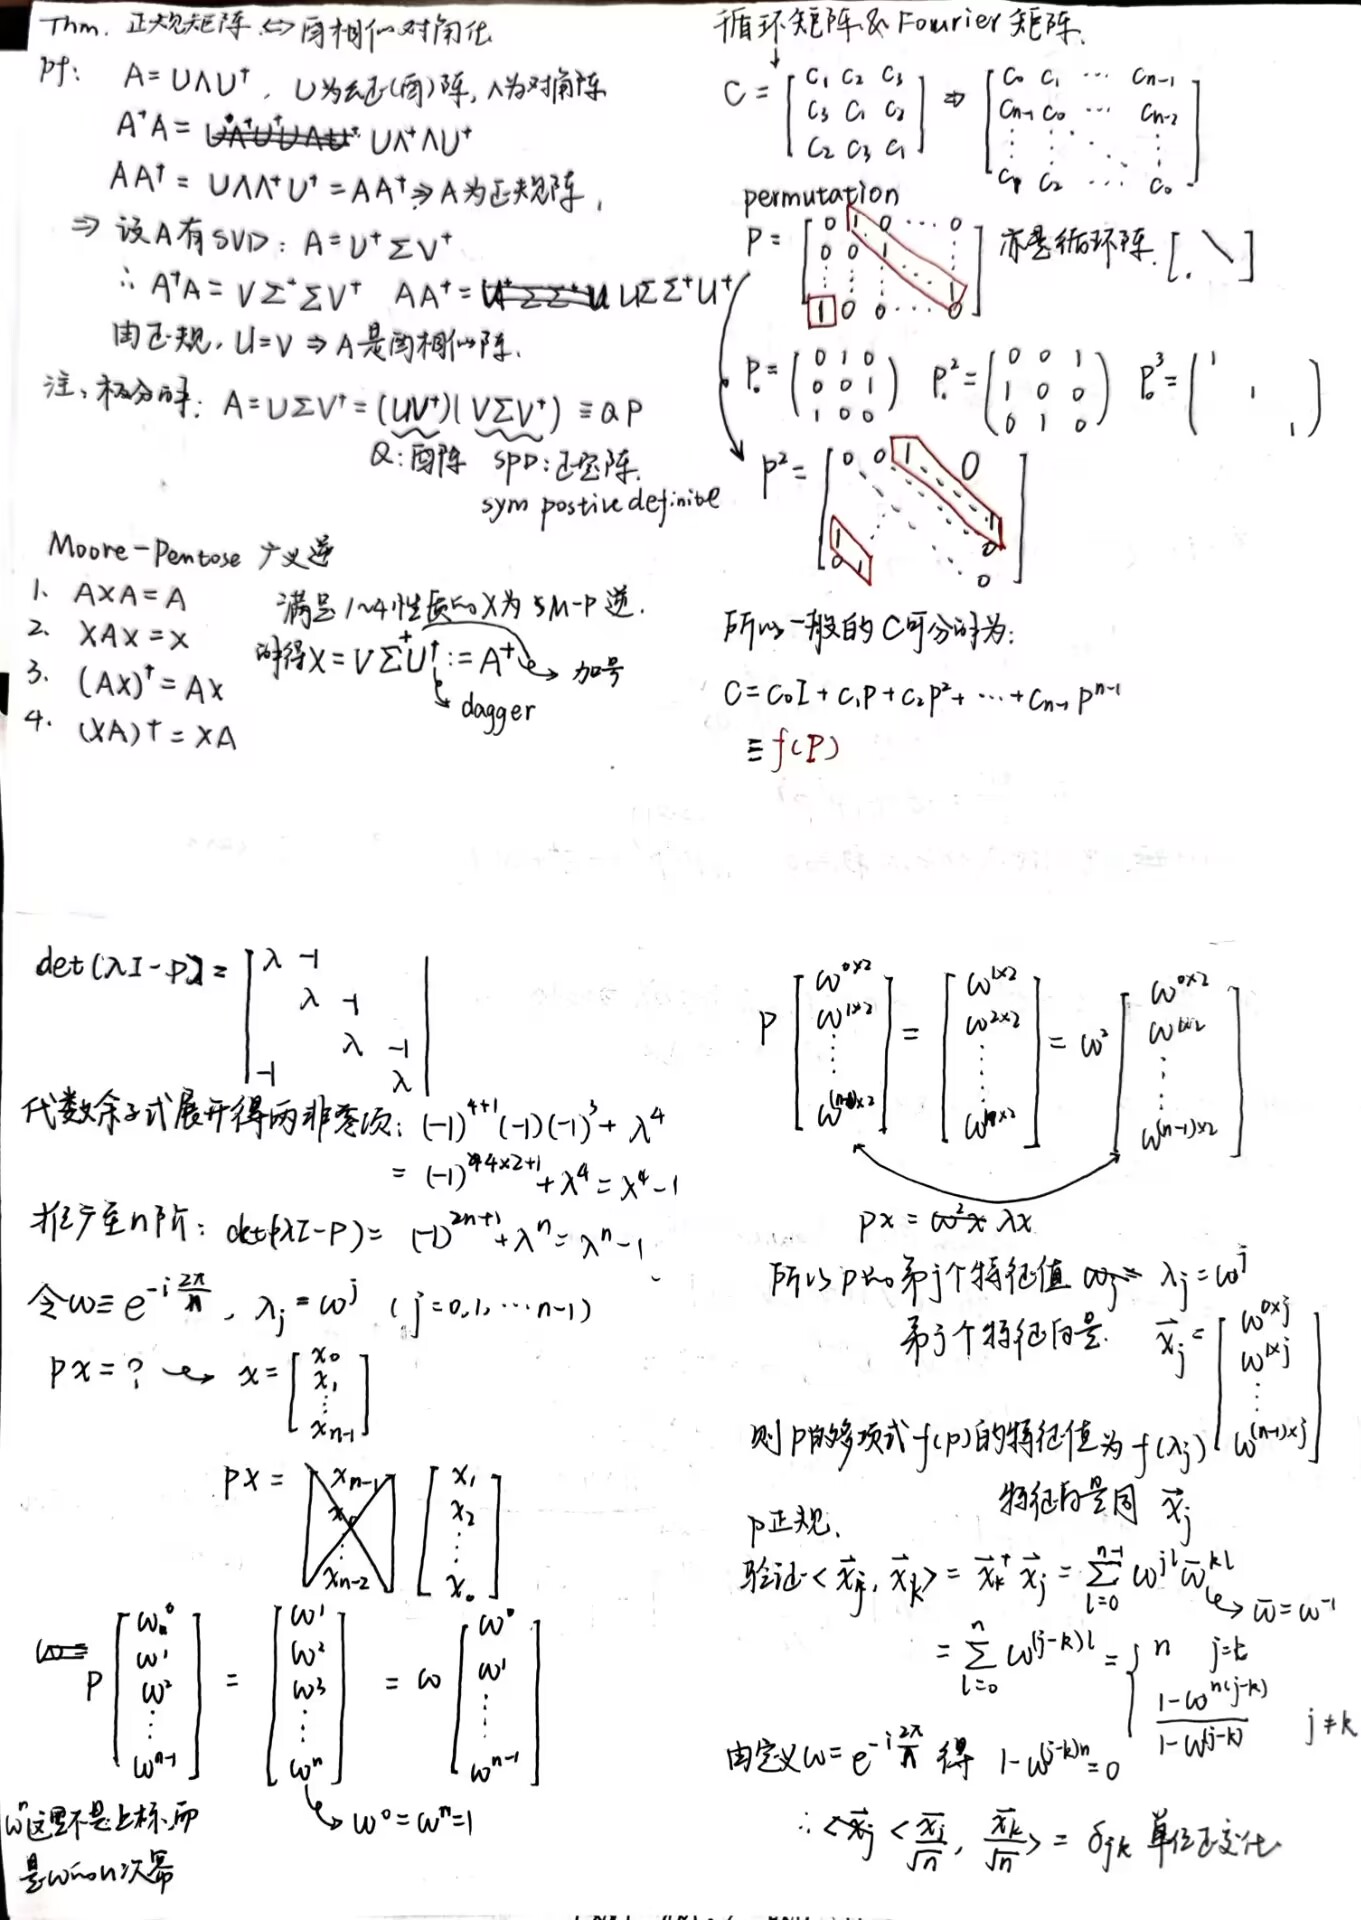 Thm. 正规矩阵 ⇔ 酉相似对角化
pf: A = UΛU†, U为幺正(酉)阵, Λ为对角阵
A†A = UΛ†ΛU†
AA† = UΛΛ†U† = AA† ⇒ A为正规阵,
⇒ 设A有SVD: A = U†ΣV†
∴ A†A = VΣ†ΣV† AA† = UΣΣ†U†
由正规, U=V ⇒ A是酉相似阵.
注、极分解: A = UΣV† = (UV†)(VΣV†) ≡ QP
Q:酉阵 SPD:正定阵.
sym postive definite
Moore-Pentose 广义逆
1. AXA = A
2. XAX = X
3. (AX)† = AX
4. (XA)† = XA
满足1~4性质的X为 M-P逆.
解得X = VΣ⁺U† := A⁺ → 加号
dagger
循环矩阵及Fourier矩阵.
C = [ c₁ c₂ c₃ ; c₃ c₁ c₂ ; c₂ c₃ c₁ ] ⇒ [ c₀ c₁ ⋯ cₙ₋₁ ; cₙ₋₁ c₀ ⋯ cₙ₋₂ ; ⋮ ⋮ ⋱ ⋮ ; c₁ c₂ ⋯ c₀ ]
permutation
P = [ 0 1 0 ⋯ 0 ; 0 0 1 ⋮ ; ⋮ ⋮ ⋮ 1 ; 1 0 0 ⋯ 0 ] 亦是循环阵. [ . \ ]
P₀ = ( 0 1 0 ; 0 0 1 ; 1 0 0 ) P₀² = ( 0 0 1 ; 1 0 0 ; 0 1 0 ) P₀³ = ( 1 ; 1 ; 1 )
P² = [ 0 0 1 0 ; 1 ; 1 0 ; 0 1 0 ]
所以一般的C可分解为:
C = c₀I + c₁P + c₂P² + ⋯ + cₙ₋₁Pⁿ⁻¹
≡ f(P)
det(λI-P) = | λ -1 ; λ -1 ; λ -1 ; -1 λ |
代数余子式展开得两非零项: (-1)⁴⁺¹(-1)(-1)³ + λ⁴
= (-1)⁴ˣ²⁺¹ + λ⁴ = λ⁴-1
推广至n阶: det(λI-P) = (-1)²ⁿ⁺¹ + λⁿ = λⁿ-1
令ω ≡ e^{-i 2π/n}, λⱼ = ωʲ (j=0,1,⋯n-1)
Px = ? → x = [ x₀ ; x₁ ; ⋮ ; xₙ₋₁ ]
Px = [ x₁ ; x₂ ; ⋮ ; x₀ ]
P [ ω⁰ ; ω¹ ; ω² ; ⋮ ; ωⁿ⁻¹ ] = [ ω¹ ; ω² ; ω³ ; ⋮ ; ωⁿ ] = ω [ ω⁰ ; ω¹ ; ⋮ ; ωⁿ⁻¹ ]
→ ω⁰ = ωⁿ = 1
ωⁿ这里不是上标,而
是ω的n次幂
P [ ω^{0×2} ; ω^{1×2} ; ⋮ ; ω^{(n-1)×2} ] = [ ω^{1×2} ; ω^{2×2} ; ⋮ ; ω^{n×2} ] = ω² [ ω^{0×2} ; ω^{1×2} ; ⋮ ; ω^{(n-1)×2} ]
Px = λx
所以P的第j个特征值 λⱼ = ωʲ
第j个特征向量. x⃗ⱼ = [ ω^{0×j} ; ω^{1×j} ; ⋮ ; ω^{(n-1)×j} ]
则P的多项式f(P)的特征值为f(λⱼ)
特征向量同 x⃗ⱼ
P正规.
验证<x⃗ⱼ, x⃗ₖ> = x⃗ₖ† x⃗ⱼ = Σ_{l=0}^{n-1} ω^{jl} ω̄^{kl}
→ ω̄ = ω⁻¹
= Σ_{l=0}^{n} ω^{(j-k)l} = { n j=k ; (1-ω^{n(j-k)})/(1-ω^{(j-k)}) j≠k
由定义ω = e^{-i 2π/n} 得 1-ω^{(j-k)n} = 0
∴ <x⃗ⱼ/√n, x⃗ₖ/√n> = δⱼₖ 单位正交化